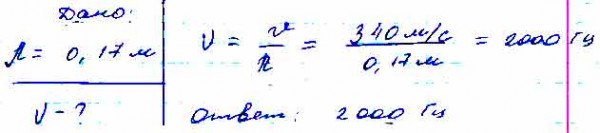 Дано:
λ = 0,17 м
ν - ?
ν = v/λ = 340 м/с / 0,17 м = 2000 Гц
ответ: 2000 Гц